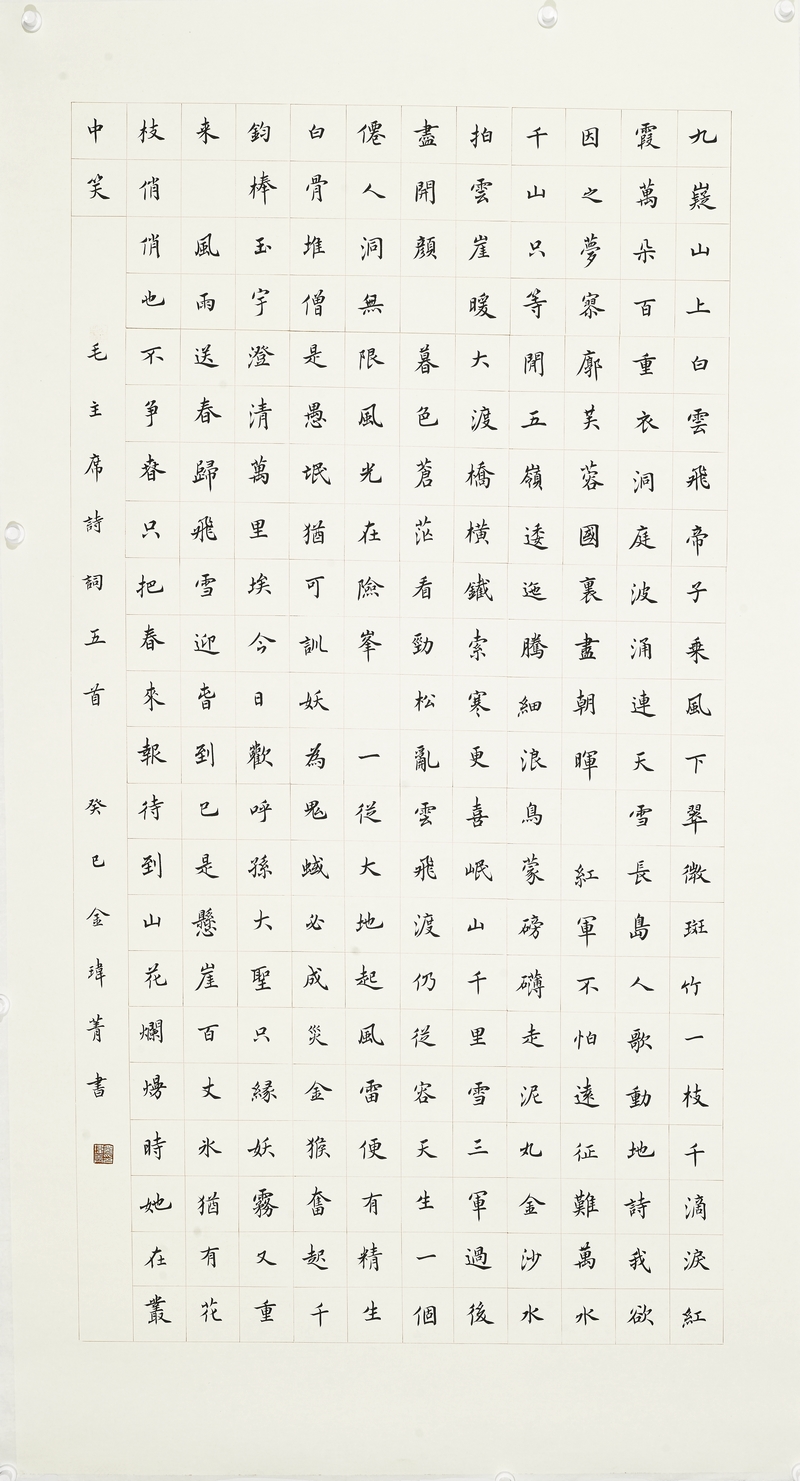 九嶷山上白雲飛帝子乘風下翠微斑竹一枝千滴淚紅
霞萬朵百重衣洞庭波涌連天雪長島人歌動地詩我欲
因之夢寥廓芙蓉國裏盡朝暉 紅軍不怕遠征難萬水
千山只等閒五嶺逶迤騰細浪鳥蒙磅礴走泥丸金沙水
拍雲崖暖大渡橋橫鐵索寒更喜岷山千里雪三軍過後
盡開顏 暮色蒼茫看勁松亂雲飛渡仍從容天生一個
僊人洞無限風光在險峯 一從大地起風雷便有精生
白骨堆僧是愚氓猶可訓妖為鬼蜮必成災金猴奮起千
鈞棒玉宇澄清萬里埃今日歡呼孫大聖只緣妖霧又重
来 風雨送春歸飛雪迎旾到已是懸崖百丈氷猶有花
枝俏俏也不爭春只把春來報待到山花爛熳時她在叢
中笑 毛主席詩詞五首 癸巳金瑋菁書